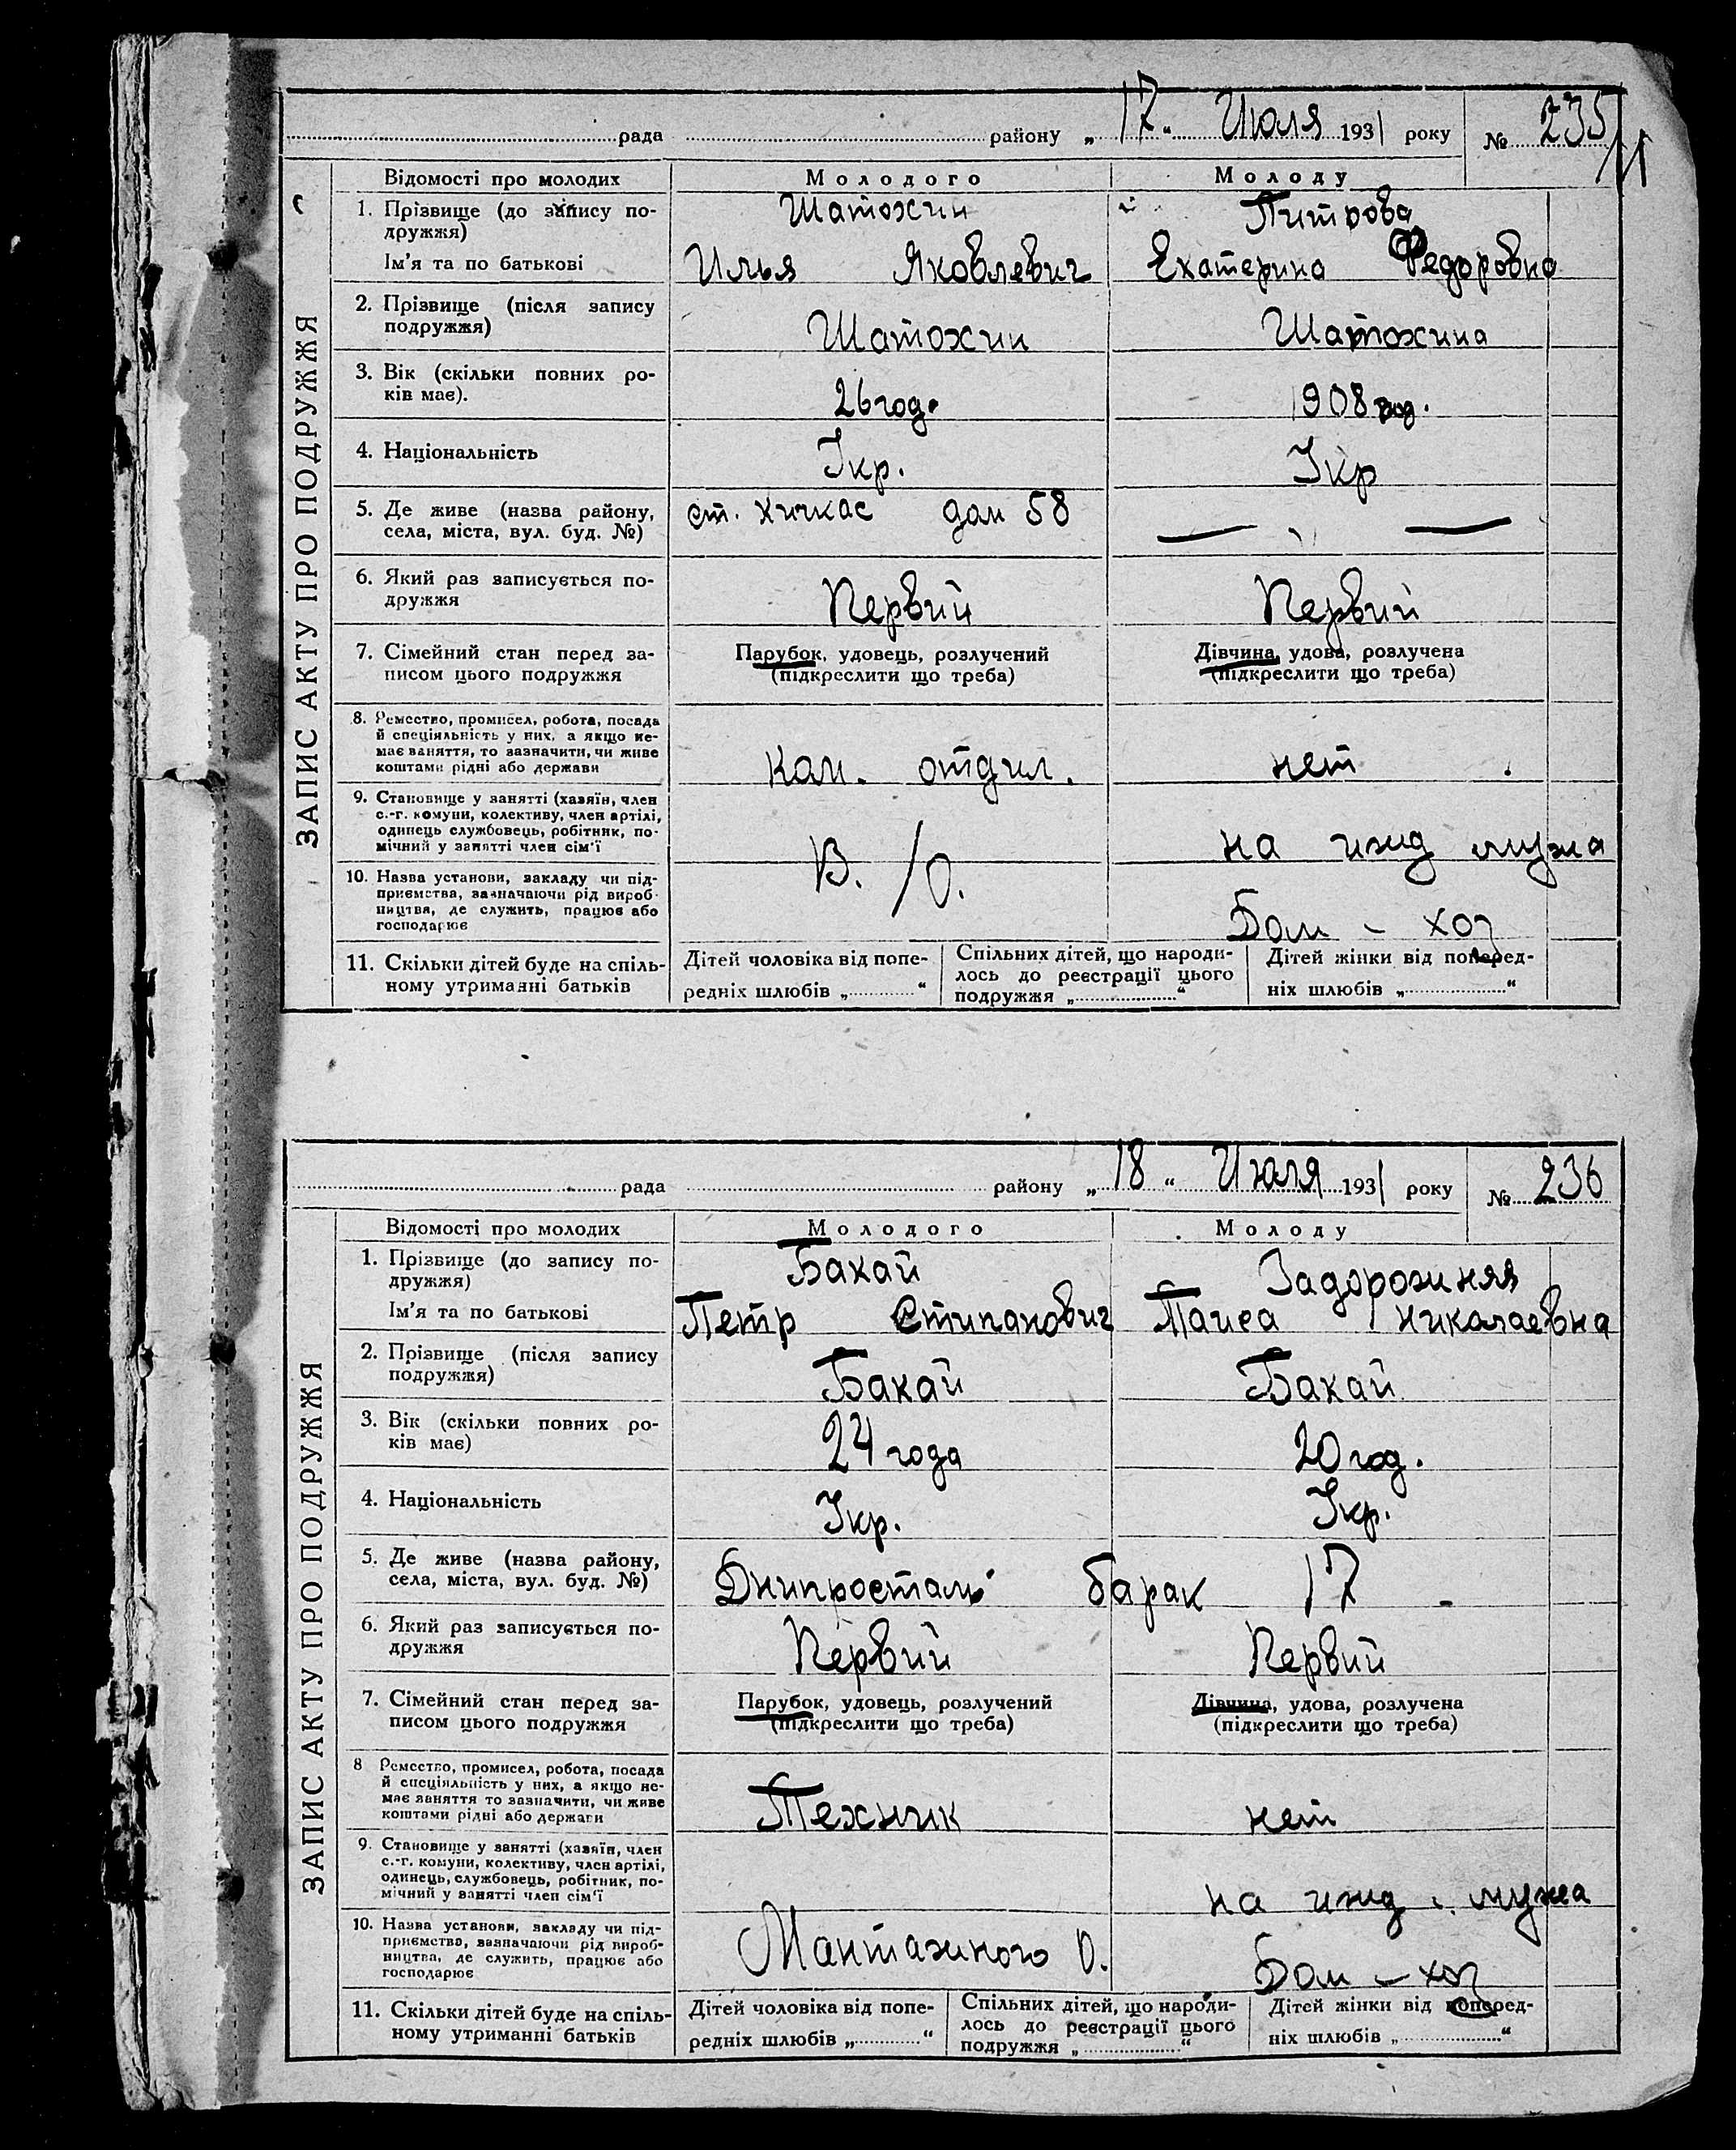 рада району „17“ Июля 1931 року № 235
ЗАПИС АКТУ ПРО ПОДРУЖЖЯ
Відомості про молодих Молодого Молоду
1. Прізвище (до запису подружжя) Шатохин Питрова
Ім'я та по батькові Илья Яковлевич Екатерина Федоровна
2. Прізвище (після запису подружжя) Шатохин Шатохина
3. Вік (скільки повних років має). 26 год. 1908 год.
4. Національність Укр. Укр
5. Де живе (назва району, села, міста, вул. буд. №) ст. Кичкас дом 58 — " —
6. Який раз записується подружжя Первий Первий
7. Сімейний стан перед записом цього подружжя Парубок, удовець, розлучений (підкреслити що треба) Дівчина, удова, розлучена (підкреслити що треба)
8. Ремество, промисел, робота, посада й спеціяльність у них, а якщо немає заняття, то зазначити, чи живе коштами рідні або держави Ком. отдил. нет
9. Становище у занятті (хазяїн, член с.-г. комуни, колективу, член артілі, одинець службовець, робітник, помічний у занятті член сім'ї на ижд мужа
10. Назва установи, закладу чи підприємства, зазначаючи рід виробництва, де служить, працює або господарює В. /О. Дом - хоз
11. Скільки дітей буде на спільному утриманні батьків Дітей чоловіка від попередніх шлюбів „ “ Спільних дітей, що народилось до реєстрації цього подружжя „ “ Дітей жінки від попередніх шлюбів „ “
рада району „18“ Июля 1931 року № 236
ЗАПИС АКТУ ПРО ПОДРУЖЖЯ
Відомості про молодих Молодого Молоду
1. Прізвище (до запису подружжя) Бакай Задорожняя
Ім'я та по батькові Петр Стипанович Таиса Николаевна
2. Прізвище (після запису подружжя) Бакай Бакай
3. Вік (скільки повних років має) 24 года 20 год.
4. Національність Укр. Укр.
5. Де живе (назва району, села, міста, вул. буд. №) Днипросталь барак 17 -
6. Який раз записується подружжя Первий Первий
7. Сімейний стан перед записом цього подружжя Парубок, удовець, розлучений (підкреслити що треба) Дівчина, удова, розлучена (підкреслити що треба)
8 Ремество, промисел, робота, посада й спеціяльність у них, а якщо немає заняття то зазначити, чи живе коштами рідні або держави Техник нет
9. Становище у занятті (хазяїн, член с.-г. комуни, колективу, член артілі, одинець, службовець, робітник, помічний у занятті член сім'ї на ижд. мужа
10. Назва установи, закладу чи підприємства, зазначаючи рід виробництва, де служить, працює або господарює Мантажного О. Дом - хоз
11. Скільки дітей буде на спільному утриманні батьків Дітей чоловіка від попередніх шлюбів „ “ Спільних дітей, що народилось до реєстрації цього подружжя „ “ Дітей жінки від попередніх шлюбів „ “